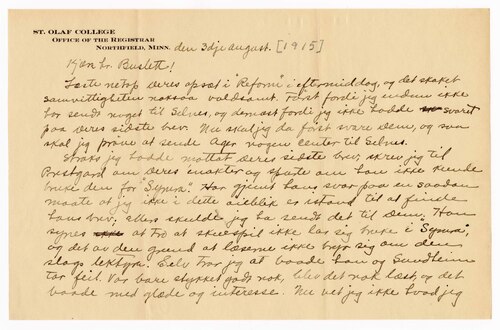 ST. OLAF COLLEGE
OFFICE OF THE REGISTRAR
NORTHFIELD, MINN.
den 3dje august. [1915]
Kjære hr. Buslett!
Læste netop Deres opsæt i "Reform" i eftermiddag, og det skaket
samvittigheten noksaa voldsomt. Først fordi jeg endnu ikke
har sendt noget til Selnes, og dernæst fordi jeg ikke hadde svaret
paa Deres sidste brev. Nu skal jeg da først svare Dem, og saa
skal jeg prøve at sende Ager nogen center til Selnes.
Straks jeg hadde mottat Deres sidste brev, skrev jeg til
Prestgard om Deres enakter og spurte om han ikke kunde
bruke den for "Symra". Har gjemt hans svar paa en saadan
maate at jeg ikke i dette øieblik er istand til at finde
hans brev; ellers skulde jeg ha sendt det til Dem. Han
synes at tro at skuespil ikke lar sig bruke i "Symra",
og det av den grund at læserne ikke bryr sig om den
slags lektyre. Selv tror jeg at baade han og Sundheim
tar feil. Var bare stykket godt nok, blev det nok læst, og det
baade med glæde og interesse. Nu vet jeg ikke hvad jeg